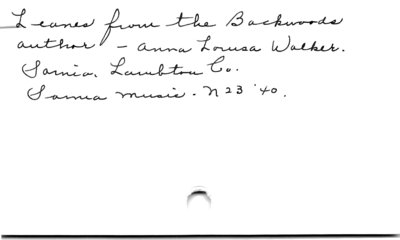 Leaves from the Backwoods
author - Anna Louisa Walker.
Sarnia, Lambton Co.
Sarnia music - N 23 '40.